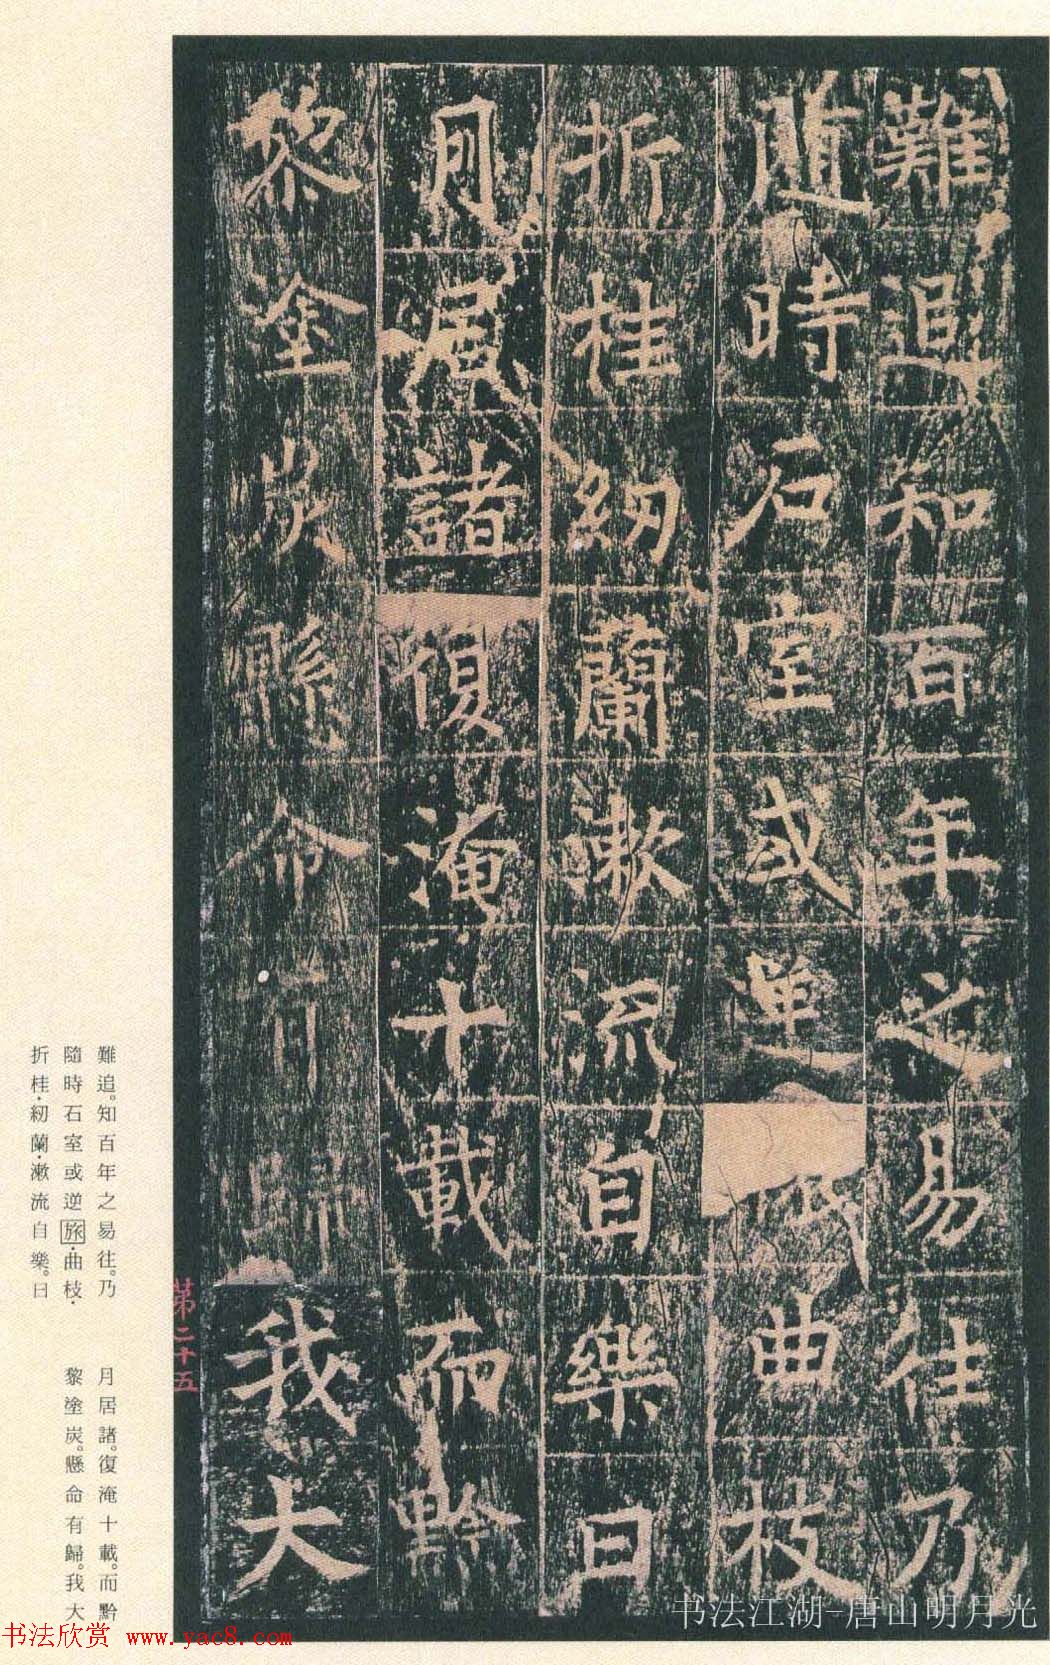 難追知百年之易往乃
隨時石室或逆旅曲枝
折桂紉蘭漱流自樂日
月居諸復淹十載而黔
黎塗炭懸命有歸我大
第二十五
難追。知百年之易往。乃
隨時石室或逆旅·曲枝·
折桂·紉蘭·漱流自樂。日
月居諸。復淹十載。而黔
黎塗炭。懸命有歸。我大
书法江湖-唐山明月光
书法欣赏 www.yac8.com